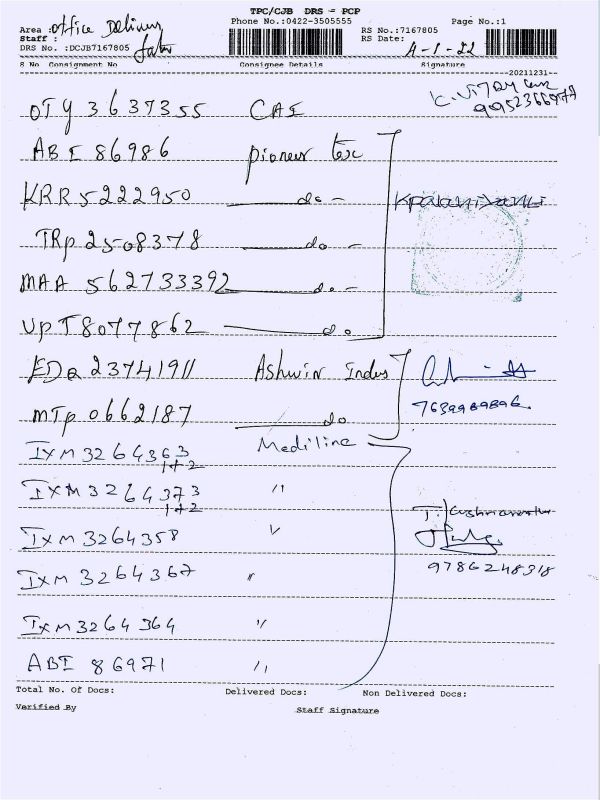 TPC/CJB DRS - PCP
Phone No.:0422-3505555 Page No.:1
Area : office Delivery
Staff :
RS No.:7167805
RS Date: 4-1-22
DRS No. :DCJB7167805
S No Consignment No Consignee Details Signature
--20211231--
OTY 3637355 CAI K. Vijay
ABI 86986 pioneer tex
KRR 5222950 do -
TRP 2508378 do -
MAA 562733392 do -
UPT8077862 do
EDQ 23741911 Ashwin Indus
MTP 0662187 do 7639969896
IXM 3264363 Mediline
1+2
IXM 3264373 "
1+2
IXM 3264358 "
IXM 3264367 " 9786248318
IXM 3264364 "
ABI 86971 "
Total No. Of Docs: Delivered Docs: Non Delivered Docs:
Verified By Staff Signature